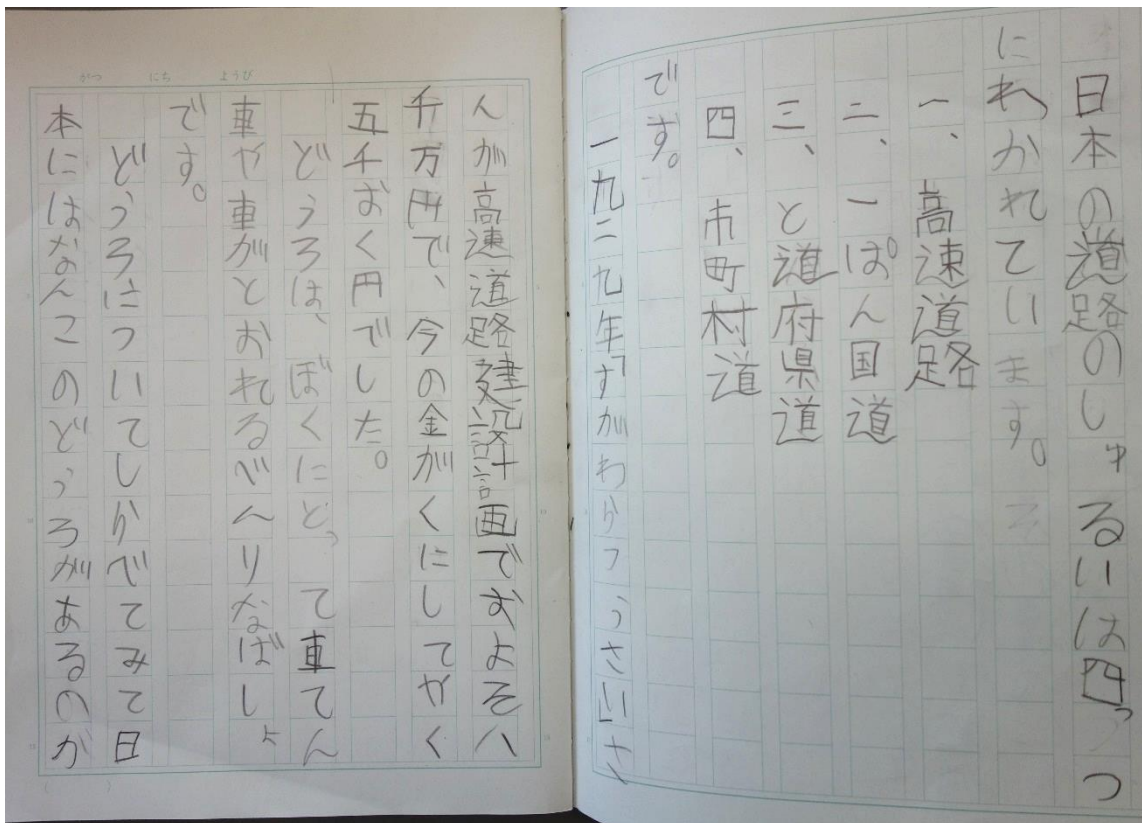 日本の道路のしゅるいは四っつ
にわかれています。
一、高速道路
二、一ぱん国道
三、と道府県道
四、市町村道
です。
一九二九年「すがわらつうさい」さ
がつ にち ようび
んが高速道路建設計画でおよそ八
千万円で、今の金がくにしてやく
五千おく円でした。
どうろは、ぼくにとって車てん
車や車がとおれるべんりなばしょ
です。
どうろについてしらべてみて日
本にはなんこのどうろがあるのか